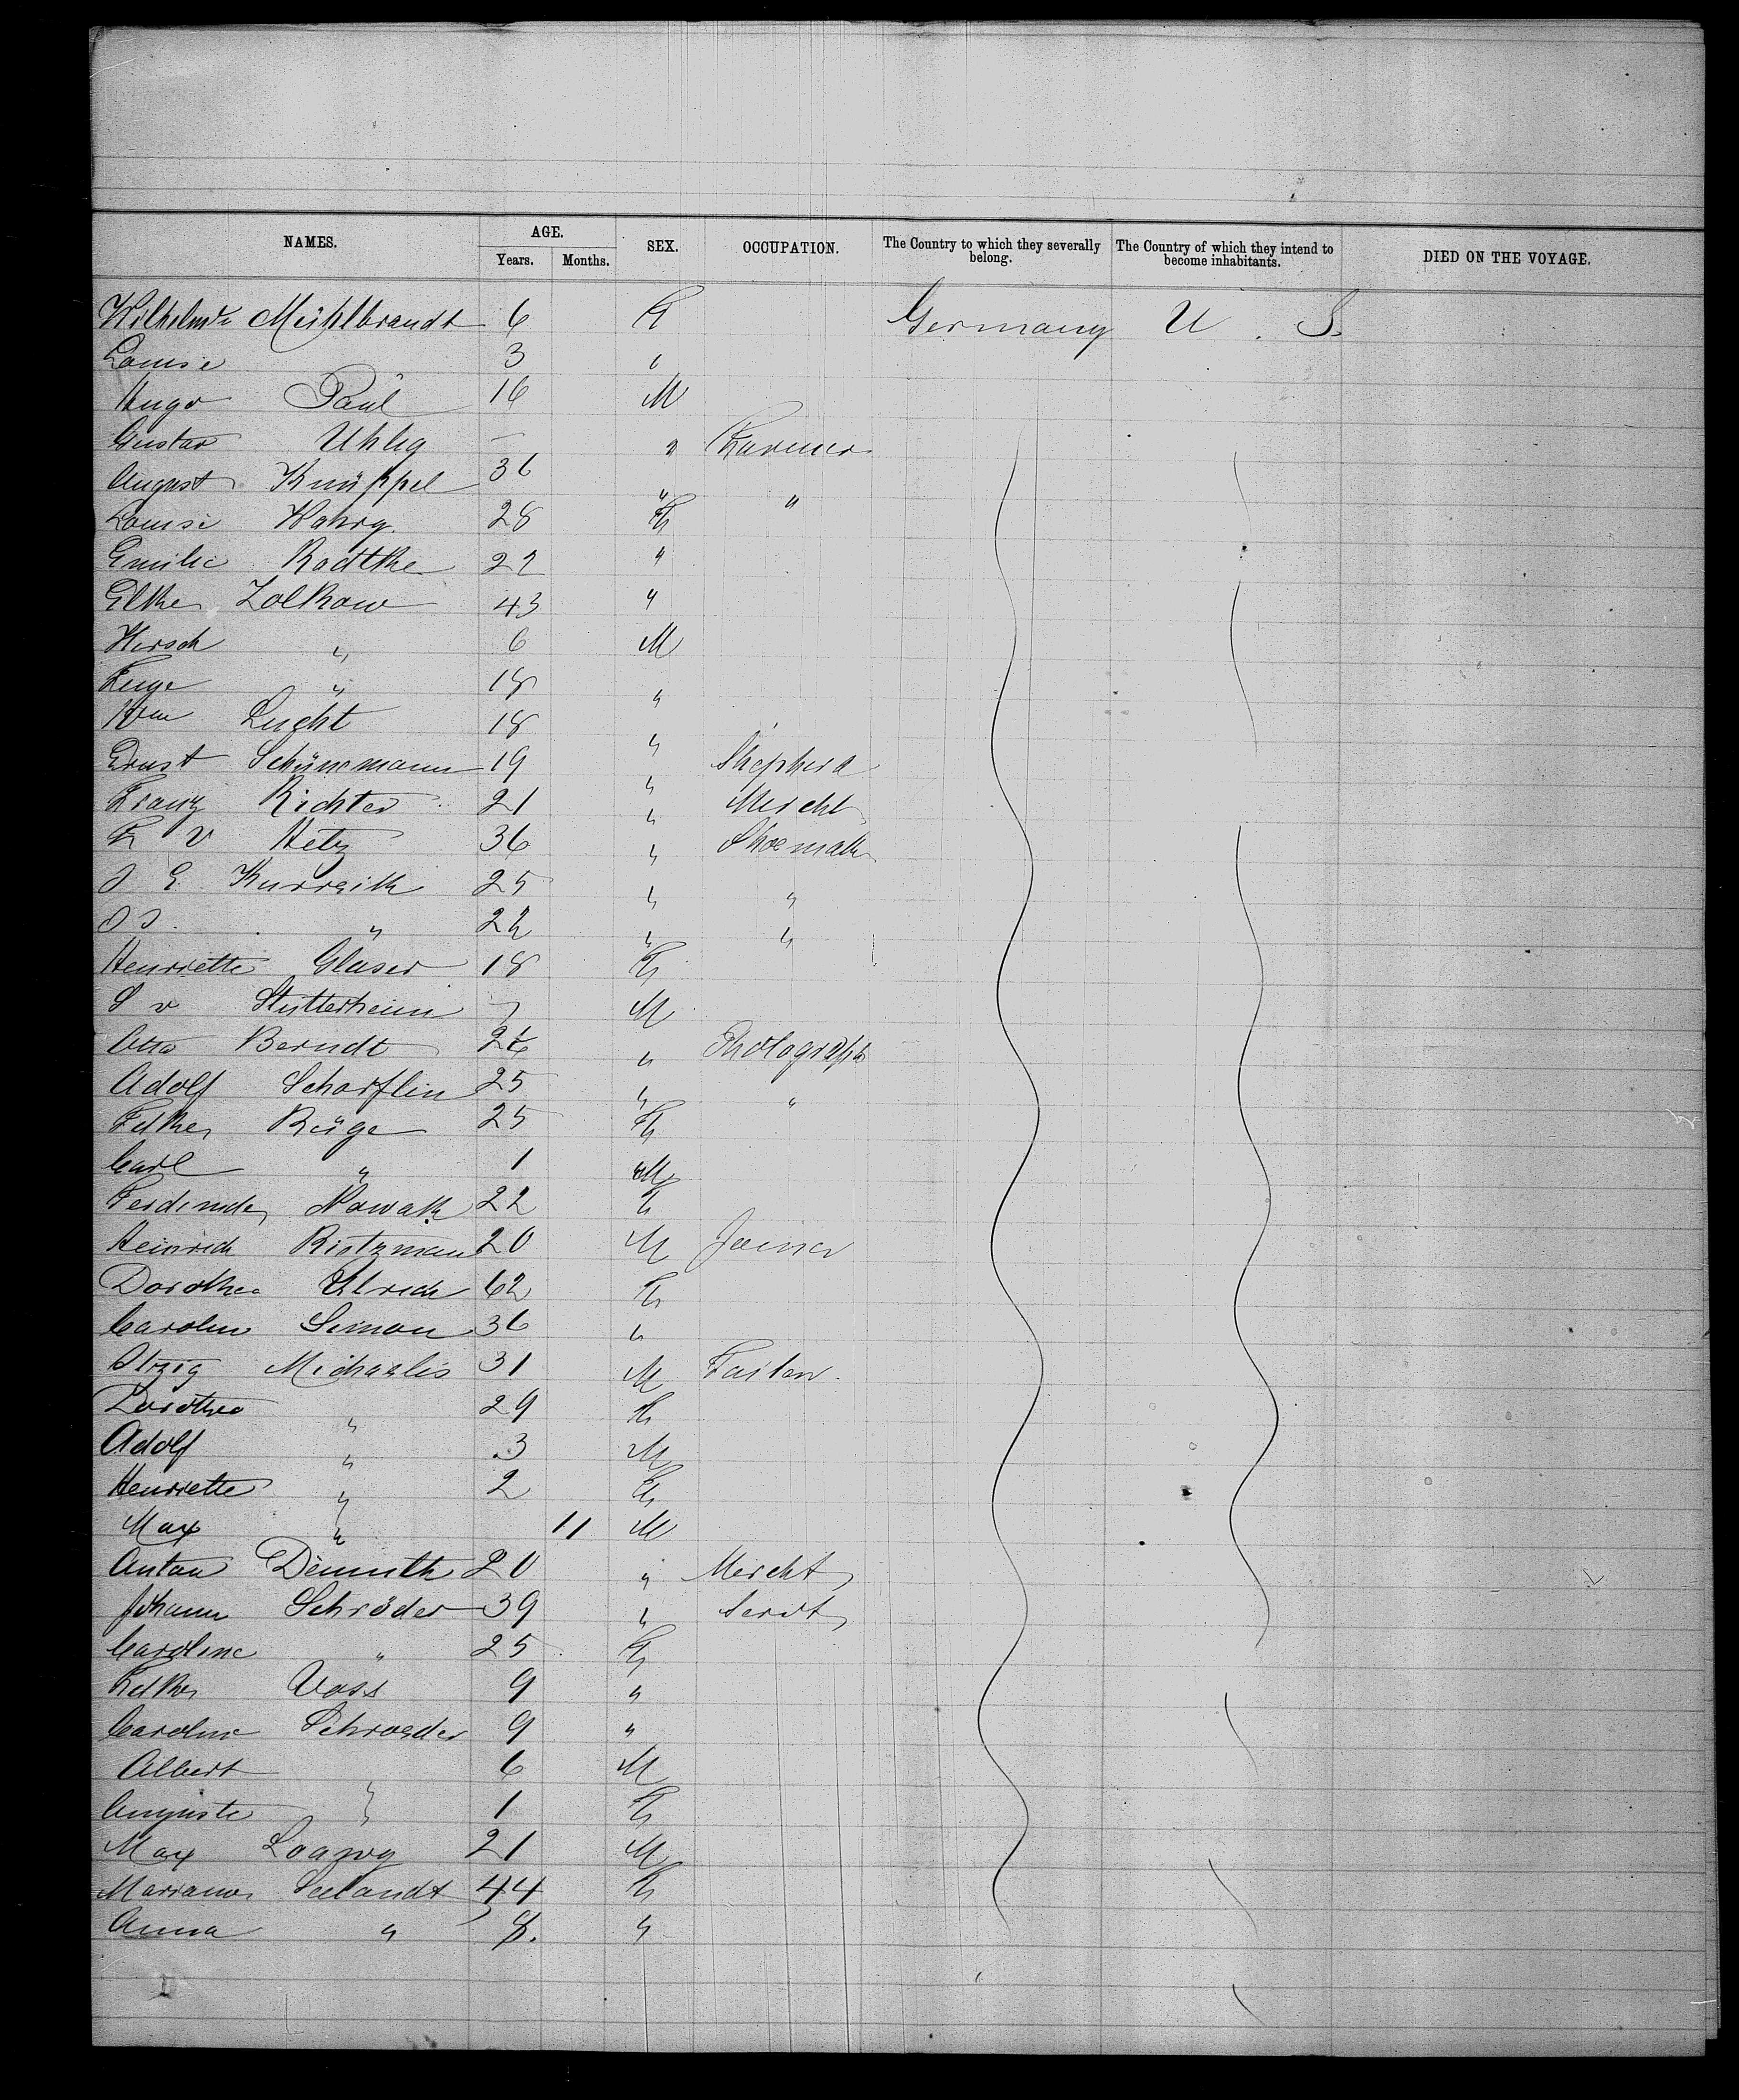 NAMES. AGE. SEX. OCCUPATION. The Country to which they severally belong. The Country of which they intend to become inhabitants. DIED ON THE VOYAGE.
Years. Months.
Mühlbrandt 6 F Germany U. S.
Louise 3 "
Hugo Paul 16 M
Gustav Uhlig — " Farmer
August Knüppel 36 " "
Louise 28 F
Emilie Radtke 22 "
Elke Zolkow 43 "
Hirsch " 6 M
" 18 "
Wm Lucht 18 "
Ernst Schünemann 19 " Shepherd
Franz Richter 21 " Mercht
F V Hetz 36 " Shoemak
J E Kurreik 25 " "
J J. " 22 " "
Henriette Glaser 18 F
S v Stutterheim 7 M
Otto Berndt " Photograph
Adolf Scharflin 25 " "
Rüge 25 F
Carl " 1 M
Nowak 22 F
Heinrich Ristzmann 20 M Joiner
Dorothea Ulrich 62 F
Carolin Simon 36 "
Itzig Michaelis 31 M Tailor.
Dorothea " 29 F
Adolf " 3 M
Henriette " 2 F
Max " 11 M
Anton Demuth 20 " Mercht
Johann Schröder 39 " Servt
Caroline " 25 F
Voss 9 "
Caroline Schroeder 9 "
Albert " 6 M
Auguste " 1 F
Max 21 M
Marianne Seelandt 44 F
Anna " 8. "